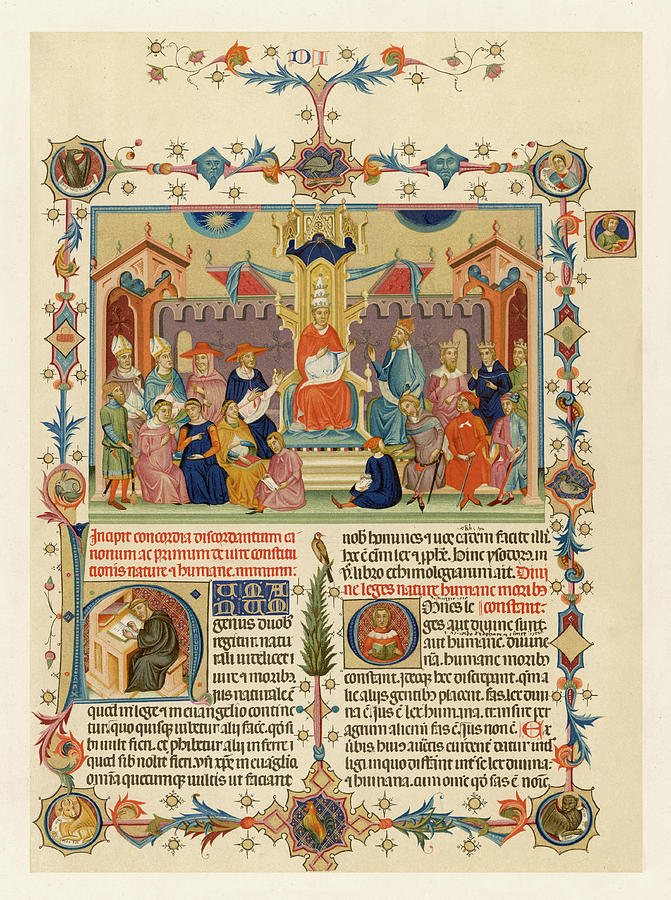 DI
Incipit concordia discordantium ca
nonum ac primum de iure constitu
tionis nature ⁊ humane.
HUMA
NUM
genus duob
regitur. natu
rali uidelicet
iure ⁊ morib
ius naturale ē
quod in lege ⁊ in euangelio contine
tur. quo quisque iubetur alij facē. qđ si
bi uult fieri. et phibetur alij inferre i
quod sib nolit fieri. vñ xpc in euāglio.
omīa quecumque uultis ut faciant
nob homines ⁊ uos eadem facite illi.
hec ē eīm lex ⁊ pphe. Hinc ysodorus. in
v. libro ethimologiarum ait. Diui
ne leges nature humane morib
constant:
Omnes le
ges aut diuine sunt
aut humane. diuine
nā. humane morib
constant. ideoque hee discrepant. qm a
lie alijs gentib placent. fas lex diui
na ē. ius ē lex humana. transire per
agrum alienū fas ē. ius non ē. Ex
bis huius auctis euidenter datur intel
ligi in quo differūt int se lex diuina
⁊ humana. cum omne qđ fas ē noīe